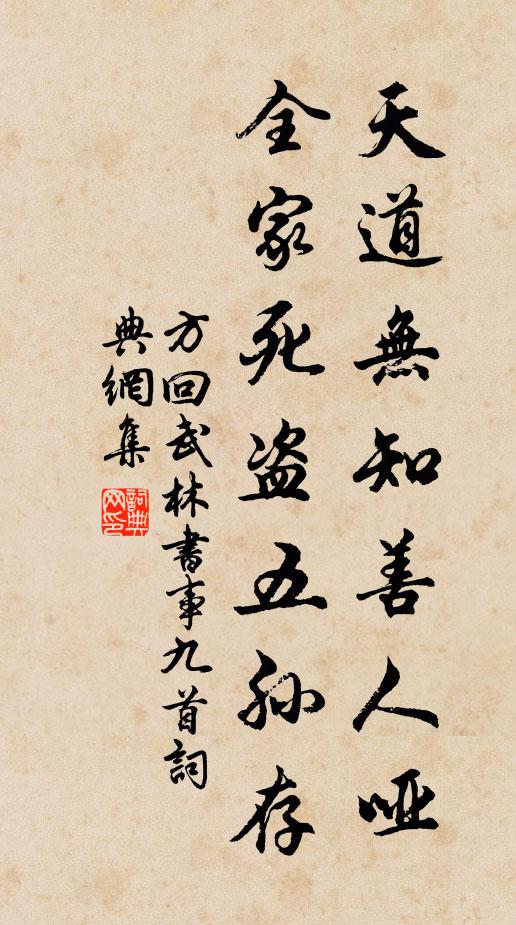 天道無知善人哑
全家死盗五孙存
方回武林書事九首詞
典網集
詞典網印